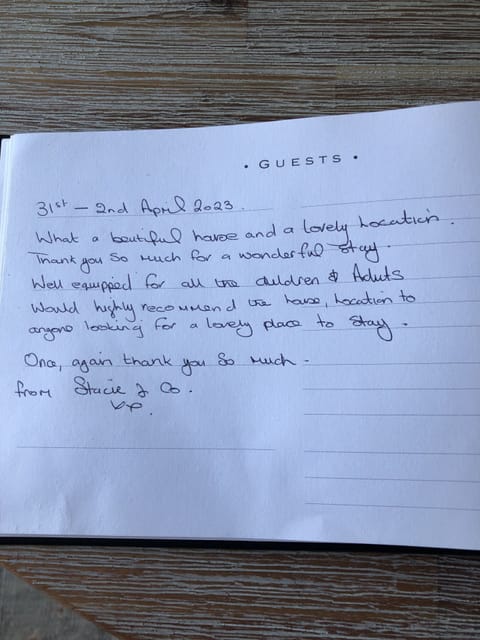 • GUESTS •
31st - 2nd April 2023.
What a beutiful house and a lovely Location.
Thank you So Much for a wonderful stay.
Well equipped for all the children & Adults
Would highly recommend the house, Location to
anyone looking for a lovely place to Stay.
Once, again thank you So Much -
from Stacie & Co.